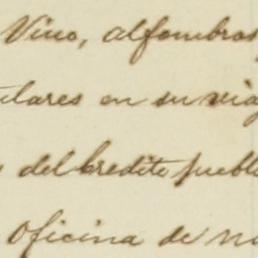 Vino, alfombras
ulares en su viaj
del Credito pueblo
Oficina de